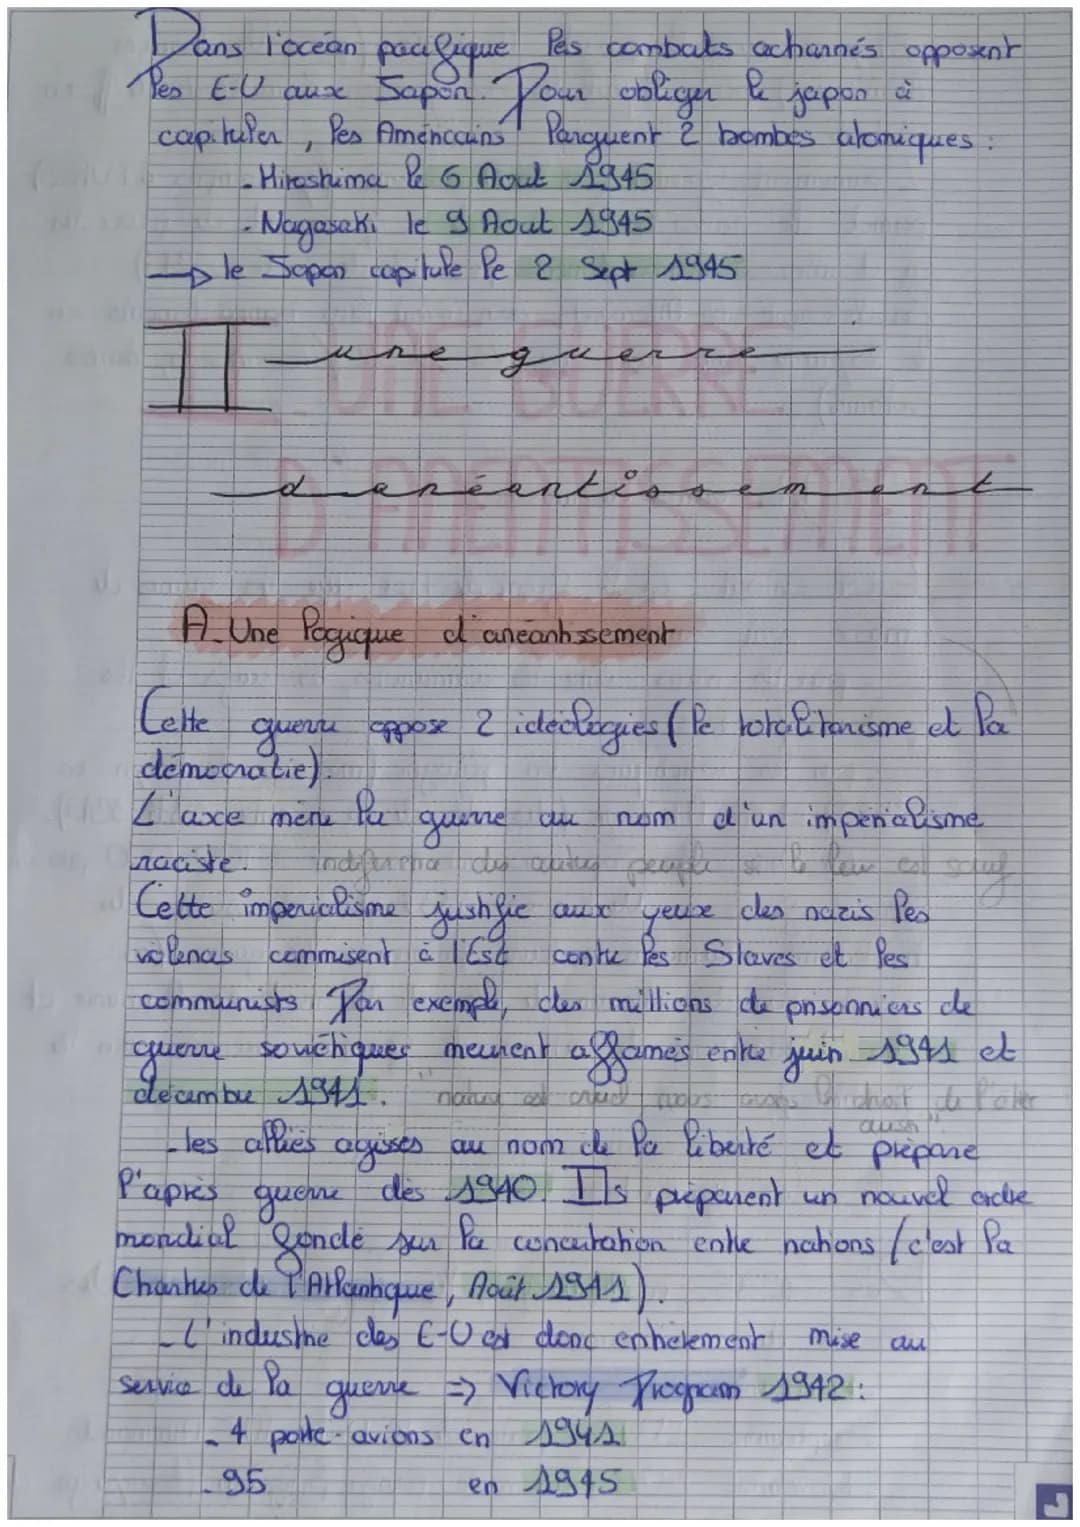 Dans l'océan pacifique les combats acharnés opposent
les E-U aux Japon. Pour obliger le japon à
capituler, les Américains larguent 2 bombes atomiques :
- Hiroshima le 6 Aout 1945
- Nagasaki le 9 Aout 1945
→ le Japon capitule le 2 Sept 1945
II une guerre
d'anéantissement
A. Une logique d'anéantissement
Cette guerre oppose 2 idéologies (le totalitarisme et la
démocratie).
L'axe mène la guerre au nom d'un impérialisme
raciste. indiférence des autres peuple si le leur est sauf
Cette impérialisme justifie aux yeux des nazis les
violences commisent à l'Est contre les Slaves et les
communists. Par exemple, des millions de prisonniers de
guerre soviétiques meurent affamés entre juin 1941 et
décembre 1941. "nature est cruel nous avons le droit de l'être
aussi".
- les alliés agisses au nom de la liberté et prépare
l'après guerre dès 1940. Ils préparent un nouvel ordre
mondial fondé sur la concertation entre nations (c'est la
Chartes de l'Atlantique, Août 1941).
- L'industrie des E-U est donc entièrement mise au
service de la guerre => Victory Program 1942 :
- 4 porte-avions en 1941
- 95 en 1945